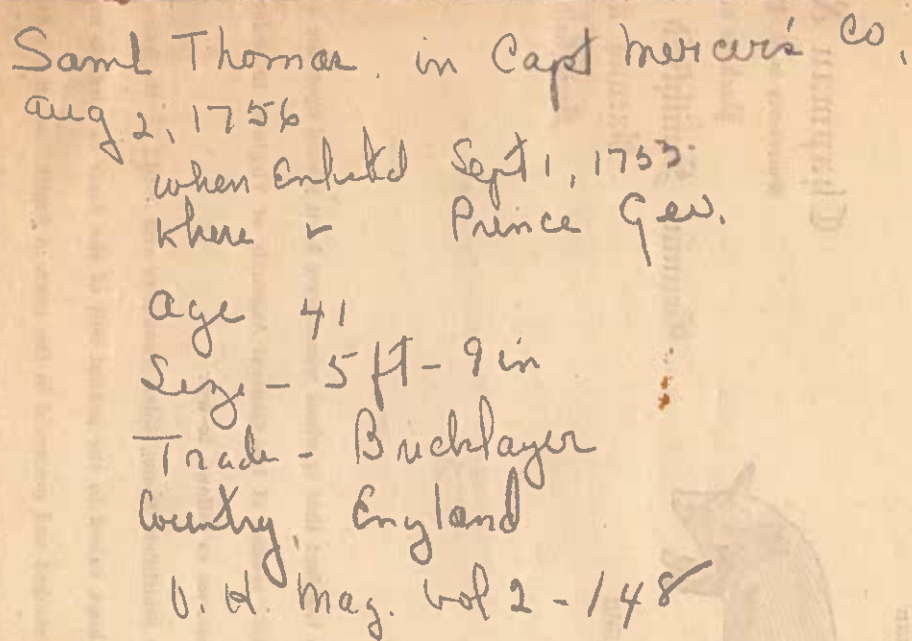 Saml Thomas. in Capt Mercer's Co.
Aug 2, 1756
when Enlistd Sept 1, 1753
where " Prince Geo.
Age 41
Size - 5 ft - 9 in
Trade - Bricklayer
Country England
V. H. Mag. vol 2 - 148